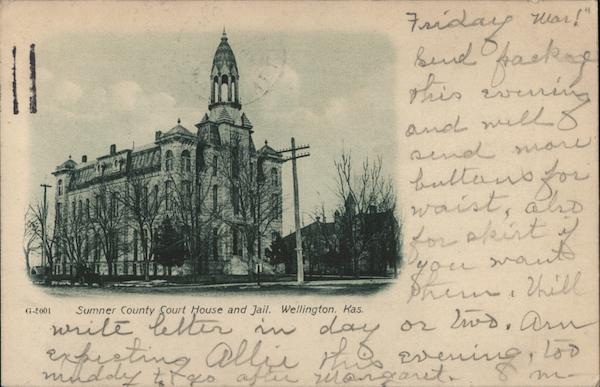 Friday Mar 1"
Send package
this evening
and will
send more
buttons for
waist, also
for skirt if
you want
them. Will
G-5001 Sumner County Court House and Jail. Wellington, Kas.
write letter in day or two. Am
expecting Allie this evening, too
muddy to go after Margaret.